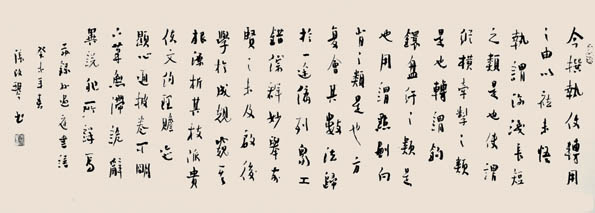 今撰執使轉用
之由以祛未悟
執謂深淺長短
之類是也使謂
縱橫牽掣之類
是也轉謂鉤
鐶盤紆之類是
也用謂點畫向
背之類是也方
復會其數法歸
於一途編列衆工
錯綜群妙舉前
賢之未及啟後
學於成規窺其
根源析其枝派貴
使文約理贍迹
顯心通披卷可明
下筆無滯詭辭
異說非所詳焉
錄孫過庭書譜
癸未年春
書